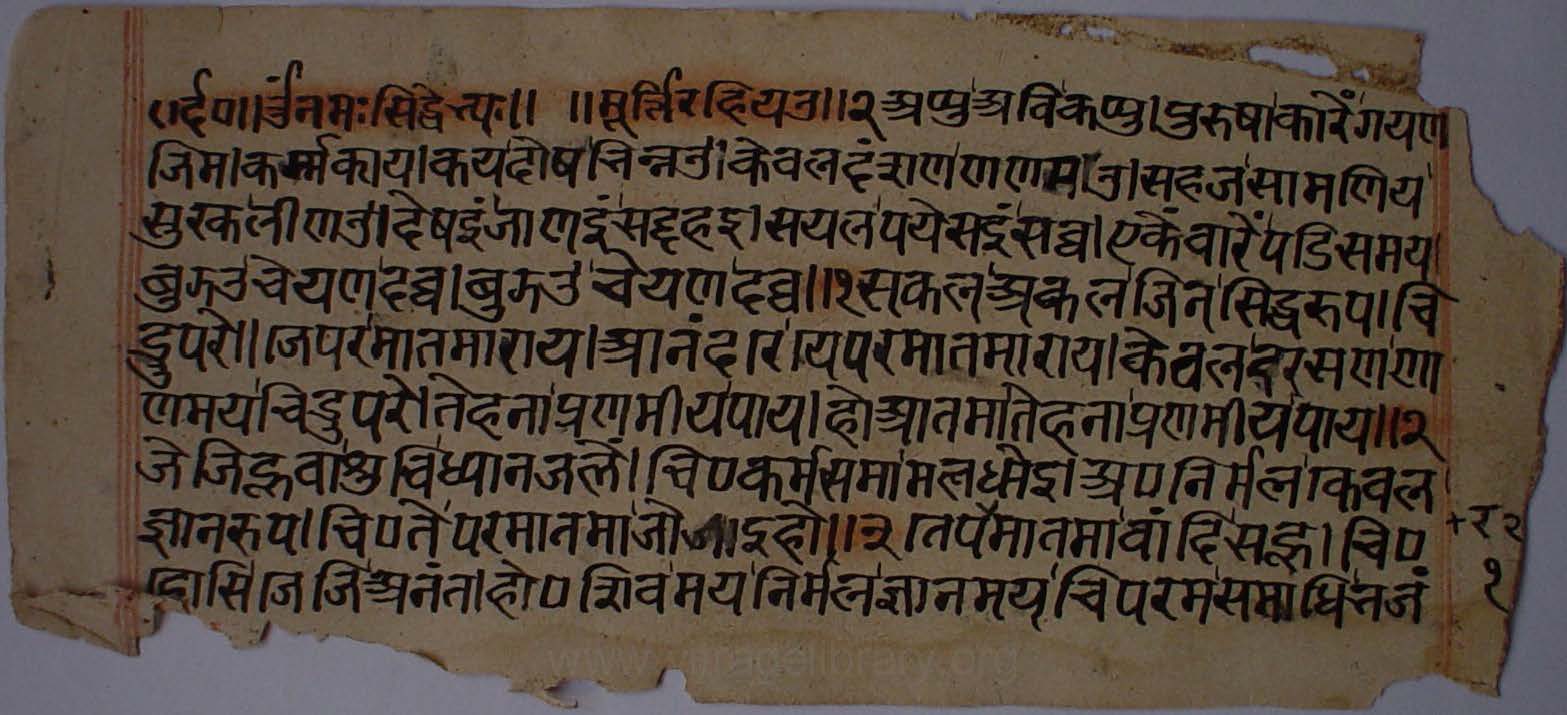 ॥र्द०॥ उँनमःसिद्धेभ्यः॥ ॥मूर्त्तिरहियउ॥२अप्पुअविकप्पु।पुरुषाकारेंगयण
जिम।कर्म्मकाय।कयदोषभिन्नउ।केवलदंशणणाणमउ।सहजसामणिय
सुरकलीणउ।देषइंजाणइंसद्दहइ।सयलपयेसइंसव्व।एकेंवारेंपडिसमय
बुझउचेयणदव्व।बुझउचेयणदव्व॥१सकलअकलजिनसिद्धरूप।चि
द्रुपरो॥जिपरमातमाराय।आनंदारायपरमातमाराय।केवलदरसणणा
णमयचिद्रुपरो।तेहनाप्रणमीयपाय।होआतमातेहनाप्रणमीयपाय॥२
जेजिह्नवांशुचिध्यानजलें।चि०कर्मसमामलधोइ।अ०निर्मलकेवल
ज्ञानरूप।चि०तेपरमातमाजोइहो॥३।तेपर्मातमावांदिसह्न।चि०
सिजिजिअनंत।हो०शिवमयनिर्मलज्ञानमयचिपरमसमाधिभजं
१
www. .org